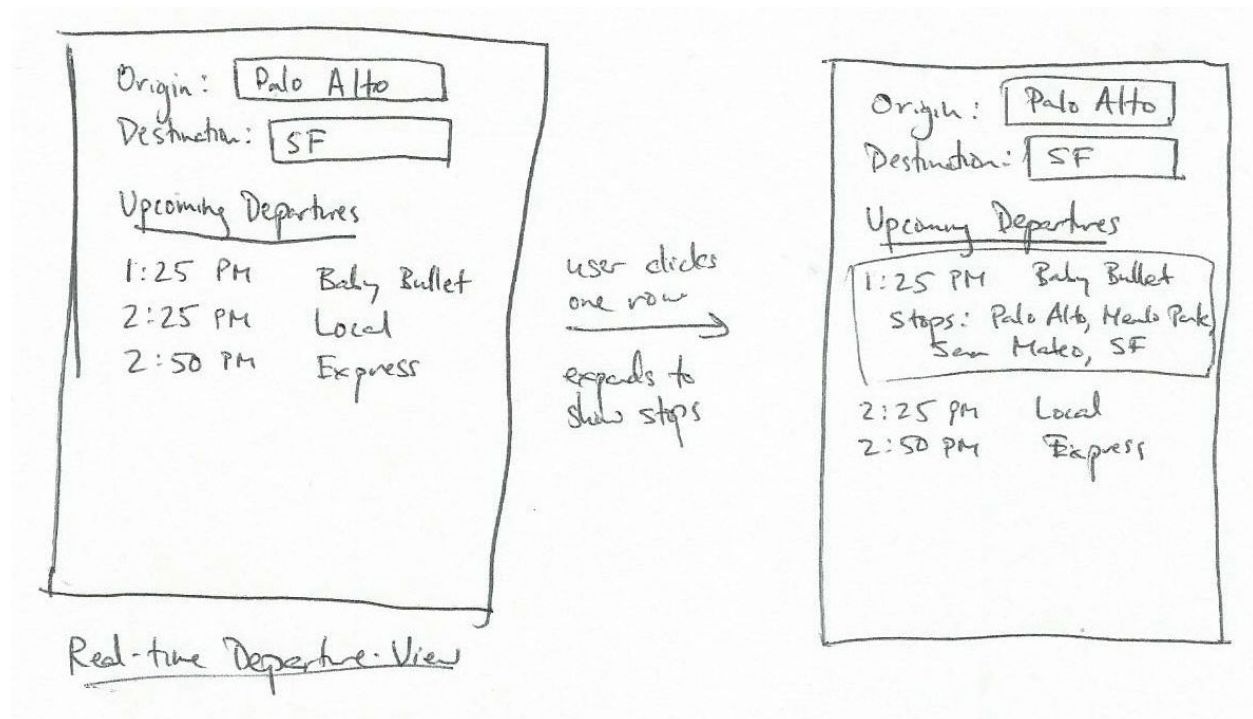 Origin: Palo Alto
Destination: SF
Upcoming Departures
1:25 PM Baby Bullet
2:25 PM Local
2:50 PM Express
Real-time Departure View
user clicks
one row
expands to
show stops
Origin: Palo Alto
Destination: SF
Upcoming Departures
1:25 PM Baby Bullet
Stops: Palo Alto, Menlo Park,
San Mateo, SF
2:25 PM Local
2:50 PM Express